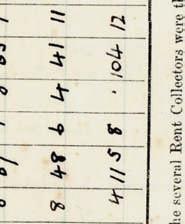 8 48 6 4 41 11
4 11 5 8 . 104 12
he several Rent Collectors were th